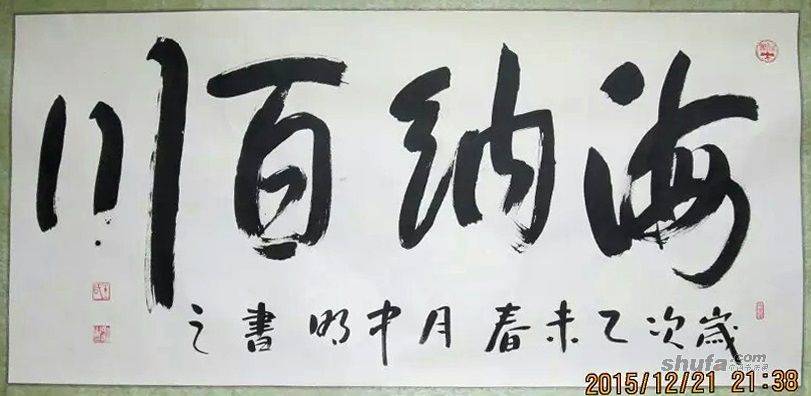 海纳百川
岁次乙未春月中明書之
shufa.com
2015/12/21 21:38